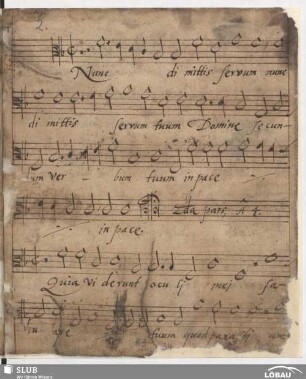 2.
Nunc di mittis servum nunc
di mittis servum tuum Domine secun-
um ver bum tuum in pace
2da pars. A 4.
in pace.
Quia vi derunt ocu lj mei sa
tuum quod para
SLUB
Wir führen Wissen.
LÖBAU